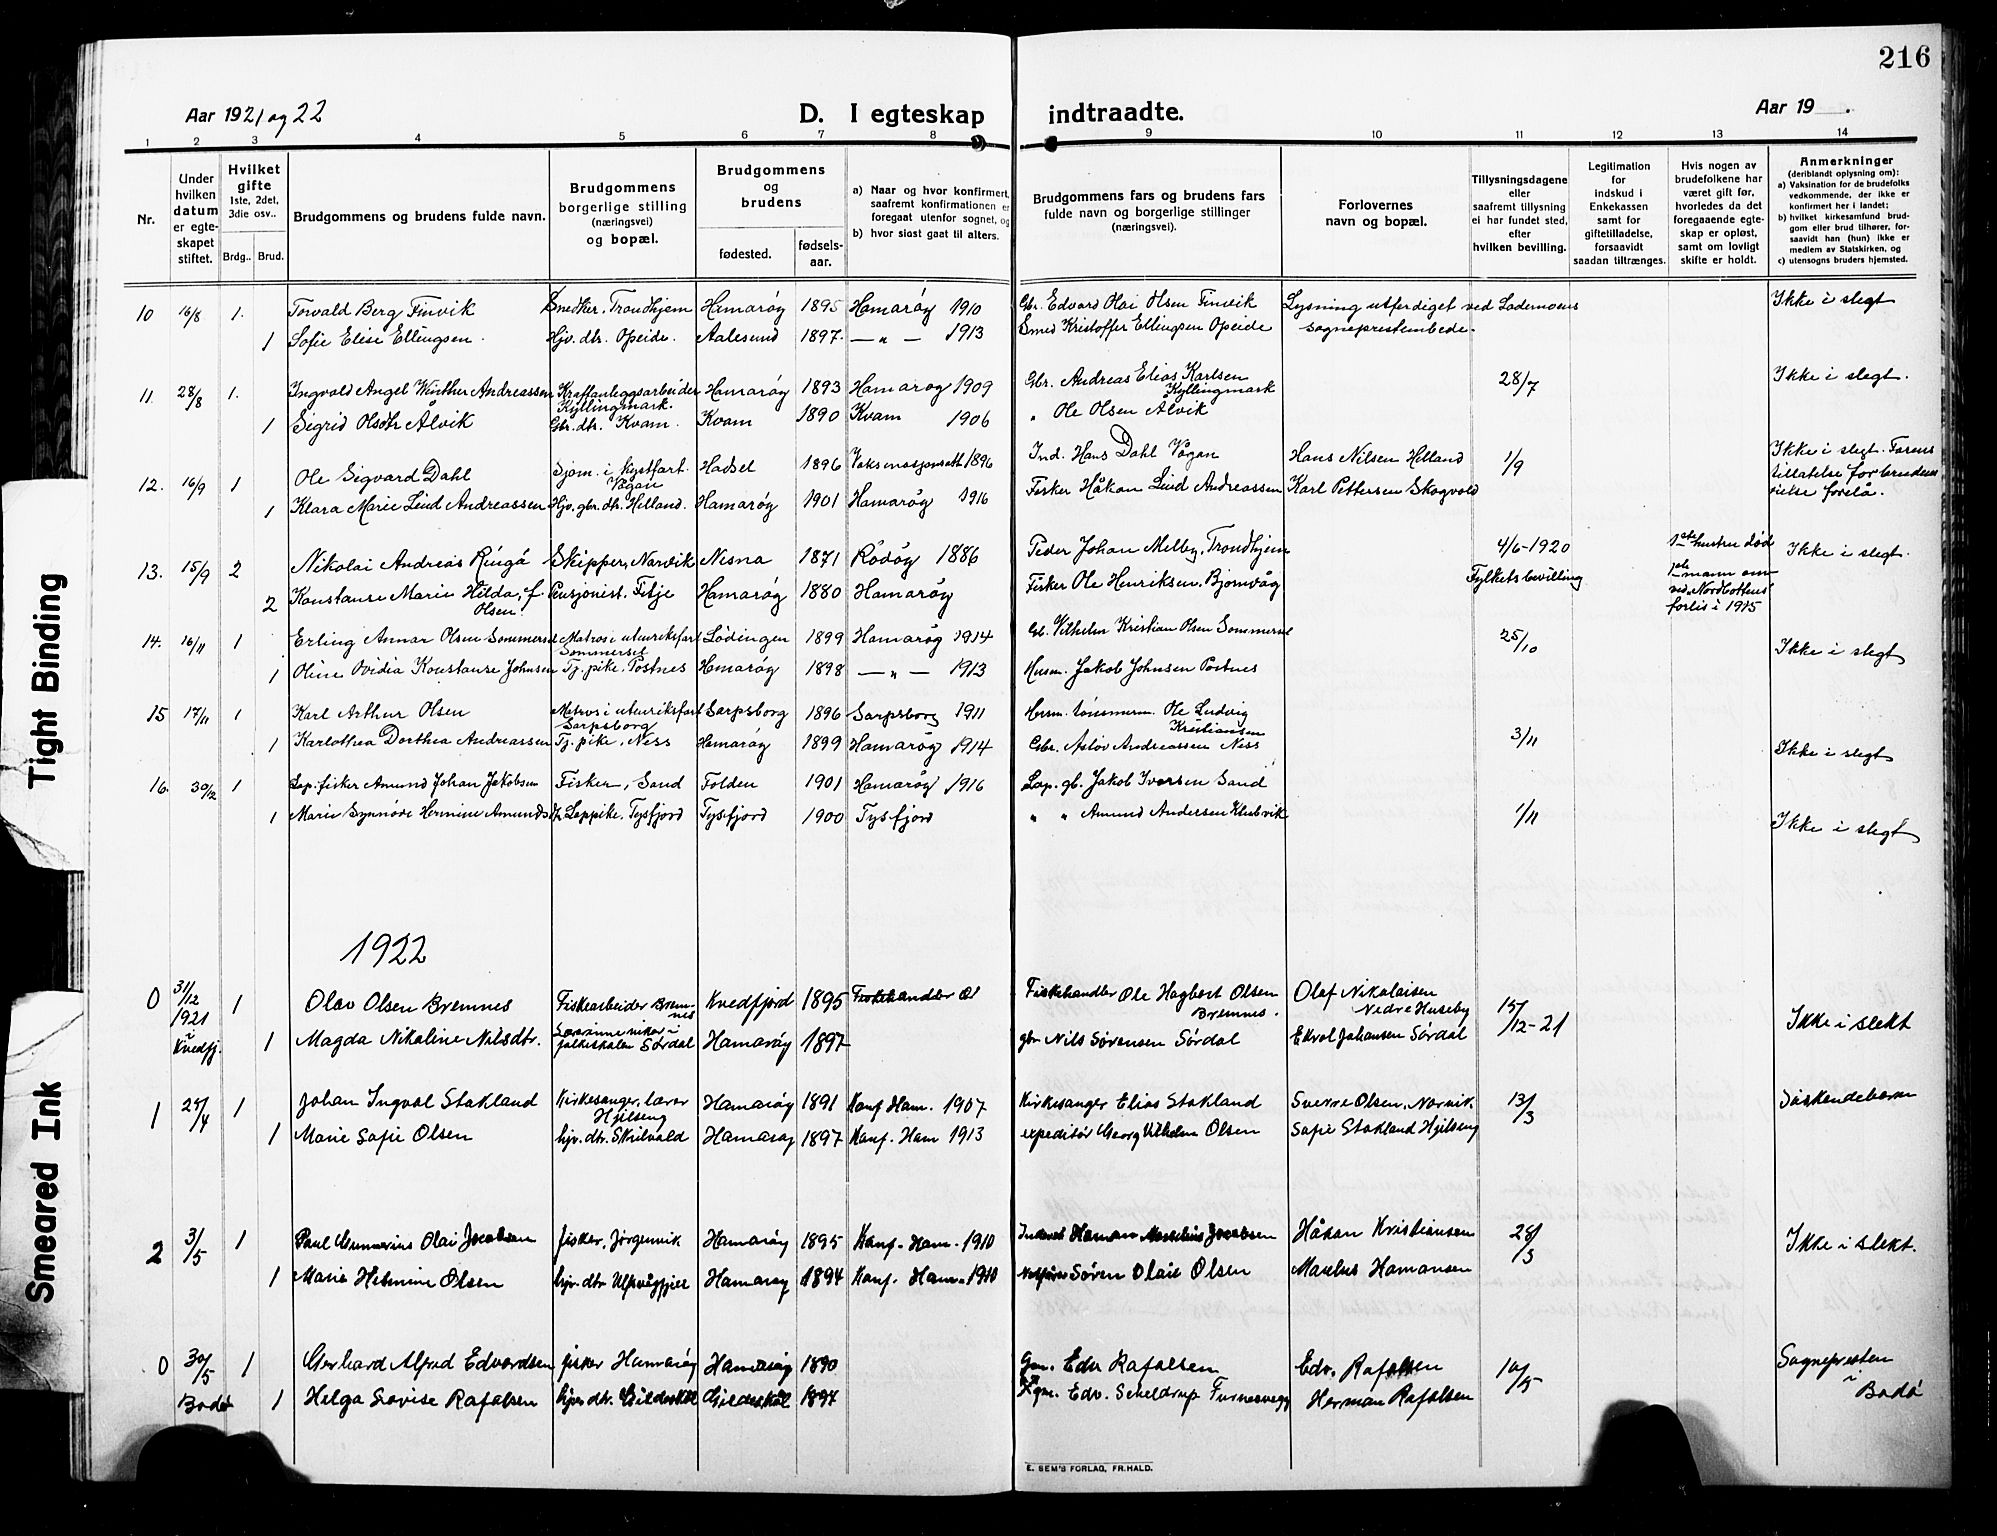 216
Aar 1921 og 22
D. I egteskap indtraadte.
Aar 19 .
1 2 3 4 5 6 7 8 9 10 11 12 13 14
Nr.
Under hvilken datum er egteskapet stiftet.
Hvilket gifte 1ste, 2det, 3die osv..
Brdg.. Brud.
Brudgommens og brudens fulde navn.
Brudgommens borgerlige stilling (næringsvei) og bopæl.
Brudgommens og brudens
fødested. fødselsaar.
a) Naar og hvor konfirmert, saafremt konfirmationen er foregaat utenfor sognet, og
b) hvor sidst gaat til alters.
Brudgommens fars og brudens fars fulde navn og borgerlige stillinger (næringsvei).
Forlovernes navn og bopæl.
Tillysningsdagene eller saafremt tillysning ei har fundet sted, efter hvilken bevilling.
Legitimation for indskud i Enkekassen samt for giftetilladelse, forsaavidt saadan tiltrænges.
Hvis nogen av brudefolkene har været gift før, hvorledes da det foregaaende egteskap er opløst, samt om lovligt skifte er holdt.
Anmerkninger (deriblandt oplysning om):
a) Vaksination for de brudefolks vedkommende, der ikke er konfirmert her i landet;
b) hvilket kirkesamfund brudgom eller brud tilhører, forsaavidt han (hun) ikke er medlem av Statskirken, og
c) utensogns bruders hjemsted.
10 16/8 1. Torvald Berg Finvik Snedker, Trondhjem Hamarøy 1895 Hamarøy 1910 Gbr. Edvard Olai Olsen Finvik Lysning utferdiget ved Lademoens Ikke i slegt
1 Sofie Elise Ellingsen. Hjv. dtr. Opeide. Aalesund 1897. — " — 1913 Smed Kristoffer Ellingsen Opeide sogneprestembede.
11. 28/8 1. Ingvald Angel Winther Andreassen Kraftanleggsarbeider Kyllingmark. Hamarøy 1893 Hamarøy 1909 Gbr. Andreas Elias Karlsen Kyllingmark 28/7 Ikke i slegt.
1 Sigrid Olsdtr Ålvik Gbr. dtr. Kvam. Kvam 1890 Kvam 1906 " Ole Olsen Ålvik
12. 16/9 1 Ole Sigvard Dahl Sjøm. i kystfart. Vågan Hadsel 1896 1896 Ind. Hans Dahl Vågan Hans Nilsen Helland 1/9 Ikke i slegt. Farens tillatelse for brudens vielse forelå.
1 Klara Marie Lind Andreassen Hjv. gbr. dtr. Helland. Hamarøy 1901 Hamarøy 1916 Fisker Håkon Lind Andreassen Karl Pettersen Skogvold
13. 15/9 2 Nikolai Andreas Ringå Skipper, Narvik Nesna 1871 Rødøy 1886 Peder Johan Melby, Trondhjem 4/6-1920 1ste hustru død Ikke i slegt.
2 Konstanse Marie Hilda, f. Olsen. Pensjonist. Fitje Hamarøy 1880 Hamarøy Fisker Ole Henriksen, Bjørnvåg Fylkets bevilling 1ste mann om ved forlis i 1915
14. 16/11 1 Erling Annar Olsen Sommerset Matros i utenriksfart Sommerset Lødingen 1899 Hamarøy 1914 Gb. Vilhelm Kristian Olsen Sommerset 25/10 Ikke i slegt
1 Oline Ovidia Konstanse Johnsen Tj. pike. Postnes Hamarøy 1898 — " — 1913 Husm. Jakob Johnsen Postnes
15 17/11 1 Karl Arthur Olsen Matros i utenriksfart Sarpsborg Sarpsborg 1896 Sarpsborg 1911 tømmerm. Ole Ludvig Kristiansen
1 Karlothea Dorthea Andreassen Tj. pike, Ness Hamarøy 1899 Hamarøy 1914 Gbr. Andreassen Ness 3/11 Ikke i slegt
16. 30/12 1 Lap. fisker Amund Johan Jakobsen Fisker, Sand Folden 1901 Hamarøy 1916 Lap. gb. Jakob Iversen Sand
1 Marie Synnøve Hermine Amundsd. Lappike, Tysfjord Tysfjord 1900 Tysfjord " " Amund Andersen 1/11 Ikke i slegt
1922
0 31/12 1921 i Kvedfj. 1 Olav Olsen Bremnes Fiskearbeider Bremnes Kvedfjord 1895 Fiskehandler Ol Fiskehandler Ole Hagbart Olsen Bremnes. Olaf Nikolaisen Nedre Huseby 15/12-21 Ikke i slekt
1 Magda Nikoline Nilsdtr. folkeskolen Sørdal Hamarøy 1897 gbr Nils Sørensen Sørdal Johansen Sørdal
1 24/4 1 Johan Ingval Stokland Kirkesanger, lærer Hjilseng Hamarøy 1891 Konf Ham. 1907 Kirkesanger Elias Stokland Sverre Olsen, Narvik 13/3 Søskendebarn
1 Marie Sofie Olsen hjv. dtr. Skilvald Hamarøy 1897 Konf. Ham 1913 expeditør Georg Vilhelm Olsen Sofie Stokland Hjilseng
2 3/5 1 Paul Olai Jacobsen fisker, Jørgenvik Hamarøy 1895 Konf. Ham. 1910 Jacobsen Håkon Kristiansen 28/3 Ikke i slekt.
1 Marie Helmine Olsen hjv. dtr. Hamarøy 1894 Konf. Ham. 1910 Søren Olaie Olsen Hamansen
0 30/5 Bodø 1 Gerhard Alfred Edvardsen fisker Hamarøy Hamarøy 1890 Gm. Edv Rafalsen Edv. Rafalsen 10/5 Sognepresten i Bodø
1 Helga Lovise Rafalsen hjv. dtr. Gildeskål Gildeskål 1897 gm. Edv. Scheldrup Furnesvegg Herman Rafalsen
E. SEM'S FORLAG, FR.HALD.
Tight Binding
Smeared Ink